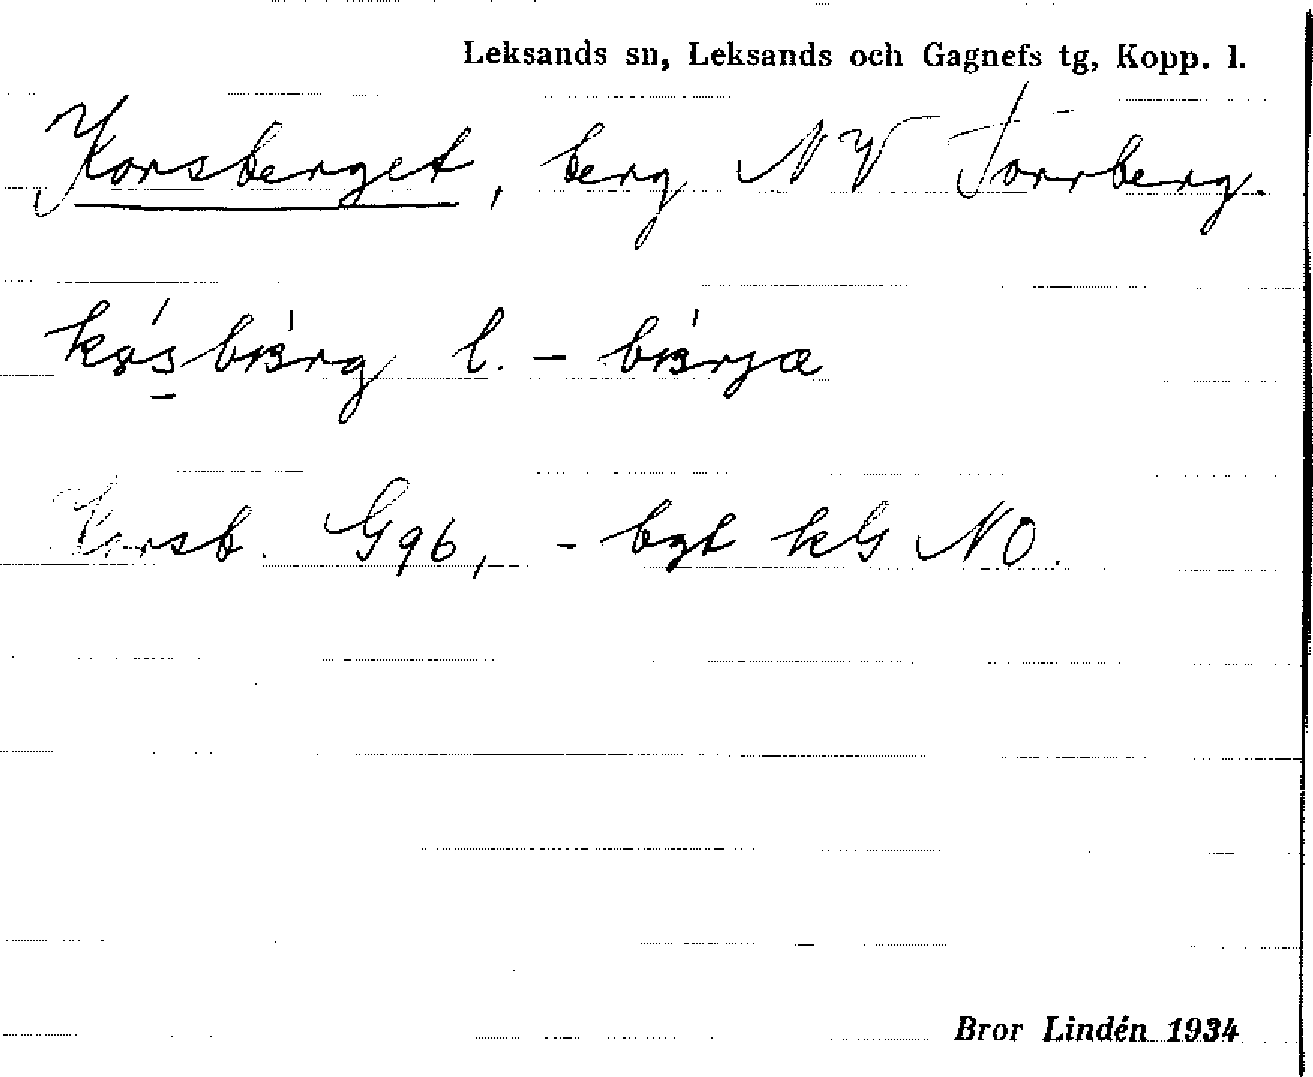 Leksands sn, Leksands och Gagnefs tg, Kopp. l.
Korsberget, berg NV Torrberg.
l. -
Korsb. G96, - bgt kG NO.
Bror Lindén 1934